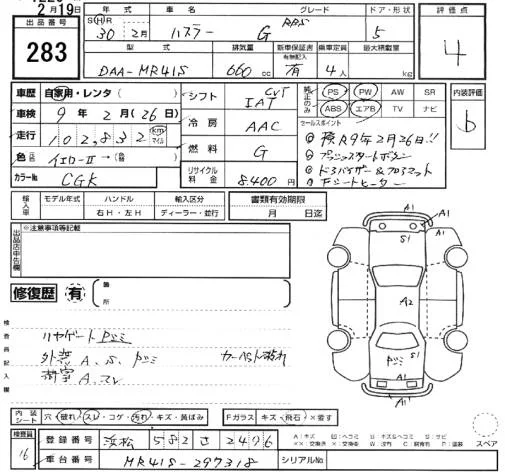 2月19日
出品番号 283
年式 車名 グレード ドア・形状 評価点
S H R 30 2月 ハスラー G 5 4
型式 排気量 新車保証書 有無記入 乗車定員 最大積載量
DAA-MR41S 660 cc 有 4人 kg
車歴 自家用・レンタ シフト CVT IAT 純正のみ PS PW AW SR 内装評価
車検 9年2月(26日) ABS エアB TV ナビ b
走行 102,832 km マイル 冷房 AAC セールスポイント
色 イエローII→ 燃料 G ①検R9年2月26日!!
②プッシュスタートボタン
カラーNo. CGK リサイクル料金 8.400円 ③ドアバイザー&フロアマット
④Fシートヒーター
輸入車 モデル年式 ハンドル 輸入区分 書類有効期限
右H・左H ディーラー・並行 月 日迄
出品店申告欄 ※注意事項等記載
修復歴 有 箇所
検査員記入欄
リヤゲートPヅミ
外装A、S、Pヅミ カーペット汚れ
内装シート 穴・破れ・スレ・コゲ・汚れ・キズ・黄ばみ Fガラス キズ・飛石・X要す
A1 A1 S1 A2 S1 Pヅミ A1 A1
スペア
検査員 16 登録番号 浜松 582 さ 2476
車台番号 MR41S-297318 シリアルNo.